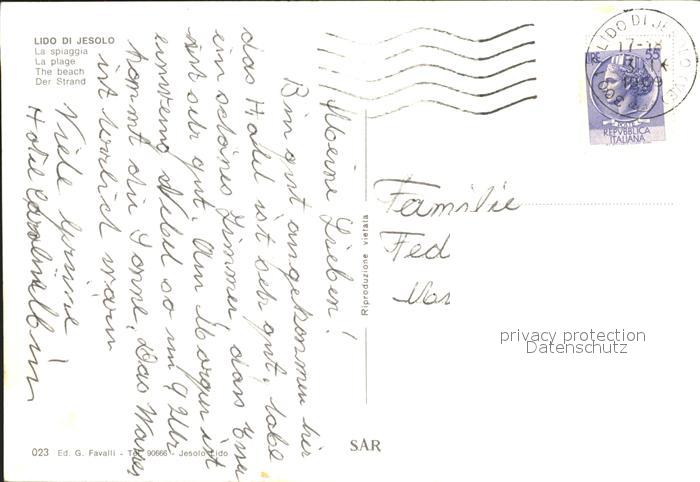 LIDO DI JESOLO
La spiaggia
La plage
The beach
Der Strand
Meine Lieben!
Bin gut angekommen hier
das Hotel ist sehr gut, habe
ein schönes Zimmer, das Essen
ist sehr gut. Am Morgen ist
ein wenig Nebel so um 9 Uhr
kommt die Sonne. Das Wasser
ist herrlich warm
Viele Grüsse
Hotel
Reproduzione vietata
LIDO DI JESOLO
17-18
LIRE 55
REPVBBLICA
ITALIANA
Familie
privacy protection
Datenschutz
023 Ed. G. Favalli - Tel. 90666 - Jesolo Lido
SAR